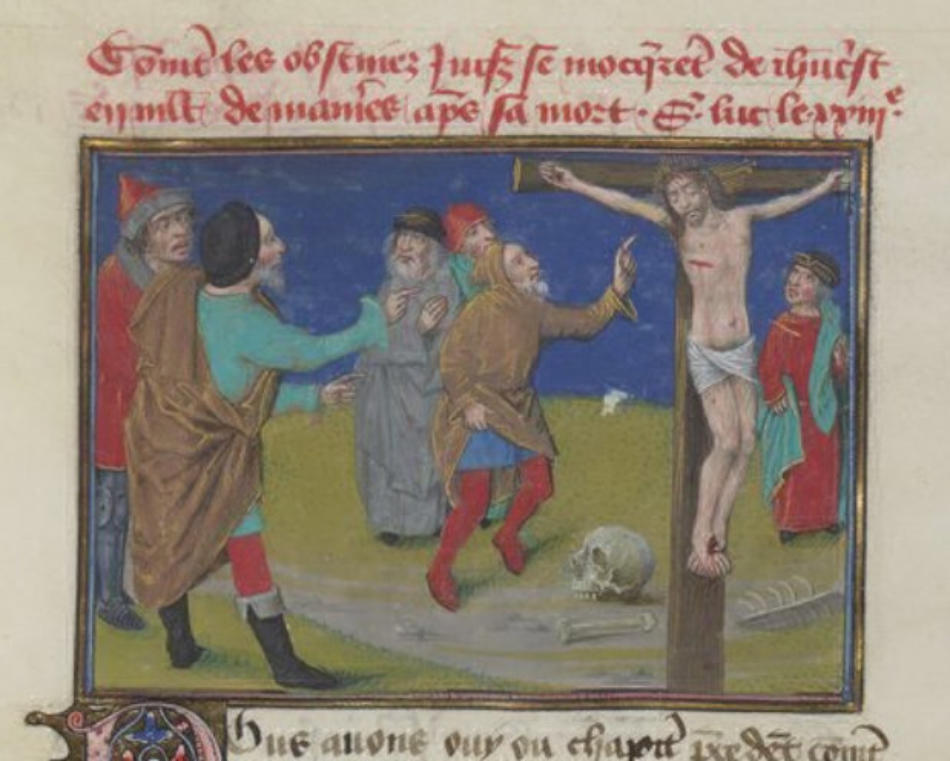 Com̃t les obstinez Juifz se mocq̃rẽt de ih̃ucṛ̃st
en mlt̃ de manieẽs ap̃s sa mort. S. luc le xxiii e.
Nous auons ouy ou chap̃itr̃ p̃cedẽt com̃t